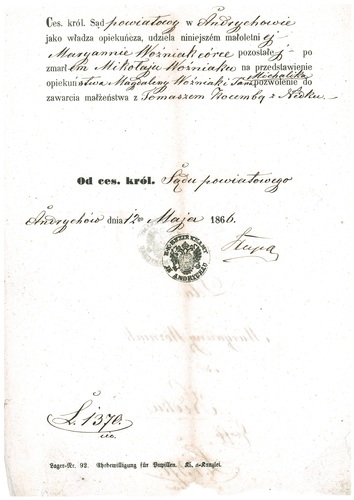 Ces. król. Sąd powiatowy w Andrychowie
jako władza opiekuńcza, udziela niniejszém małoletniéj
Maryannie Woźniakòwnie pozostałéj po
zmarłém Mikołaju Woźniaku na przedstawienie
opiekuństwa Magdaleny Woźniak i Jana Michalika pozwolenie do
zawarcia małżeństwa z Tomaszem Kocembą z Nidku.
Od ces. król. Sądu powiatowego
Andrychów dnia 12go Maja 1866.
K.K. BEZIRKSAMT
IN ANDRICHAU
L. 1370.
Lager-Nr. 92. Ehebewilligung für Pupillen.